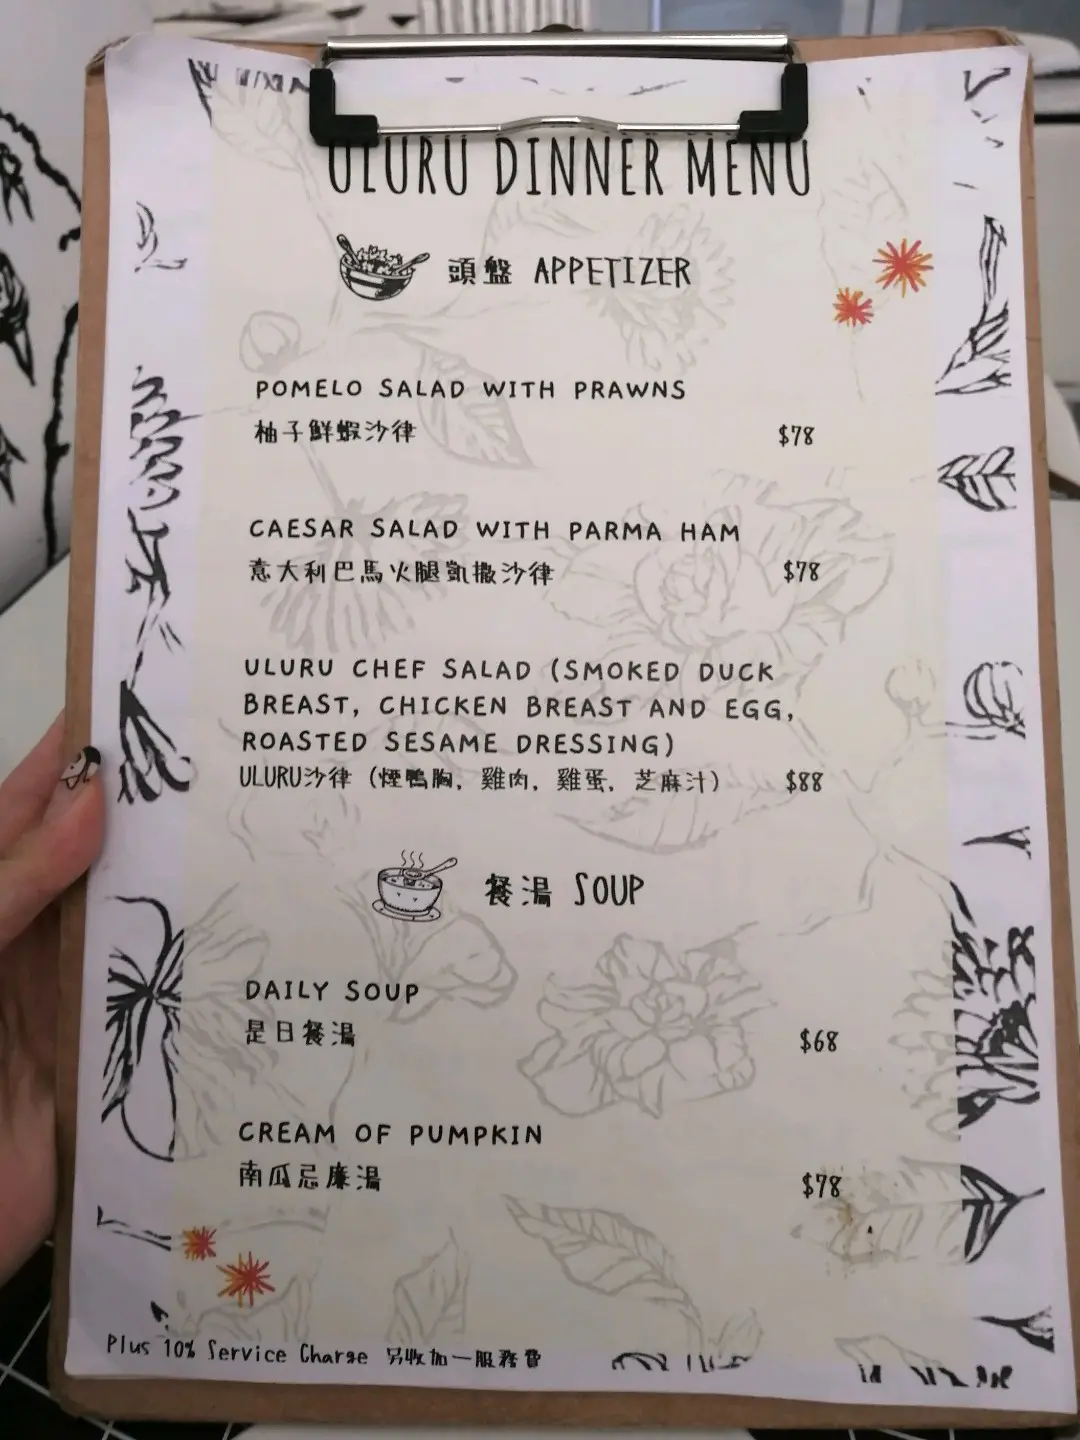 ULURU DINNER MENU
頭盤 APPETIZER
POMELO SALAD WITH PRAWNS
柚子鮮蝦沙律 $78
CAESAR SALAD WITH PARMA HAM
意大利巴馬火腿凱撒沙律 $78
ULURU CHEF SALAD (SMOKED DUCK
BREAST, CHICKEN BREAST AND EGG,
ROASTED SESAME DRESSING)
ULURU沙律 (煙鴨胸, 雞肉, 雞蛋, 芝麻汁) $88
餐湯 SOUP
DAILY SOUP
是日餐湯 $68
CREAM OF PUMPKIN
南瓜忌廉湯 $78
Plus 10% Service Charge 另收加一服務費